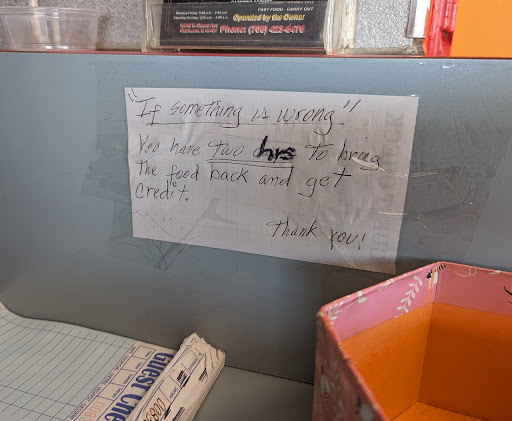 FAST FOOD - CARRY OUT
Operated by the Owner
Phone: (708) 423-8476
"If something is wrong"
You have two hrs to bring
The food back and get
credit.
Thank you!
Guest Che